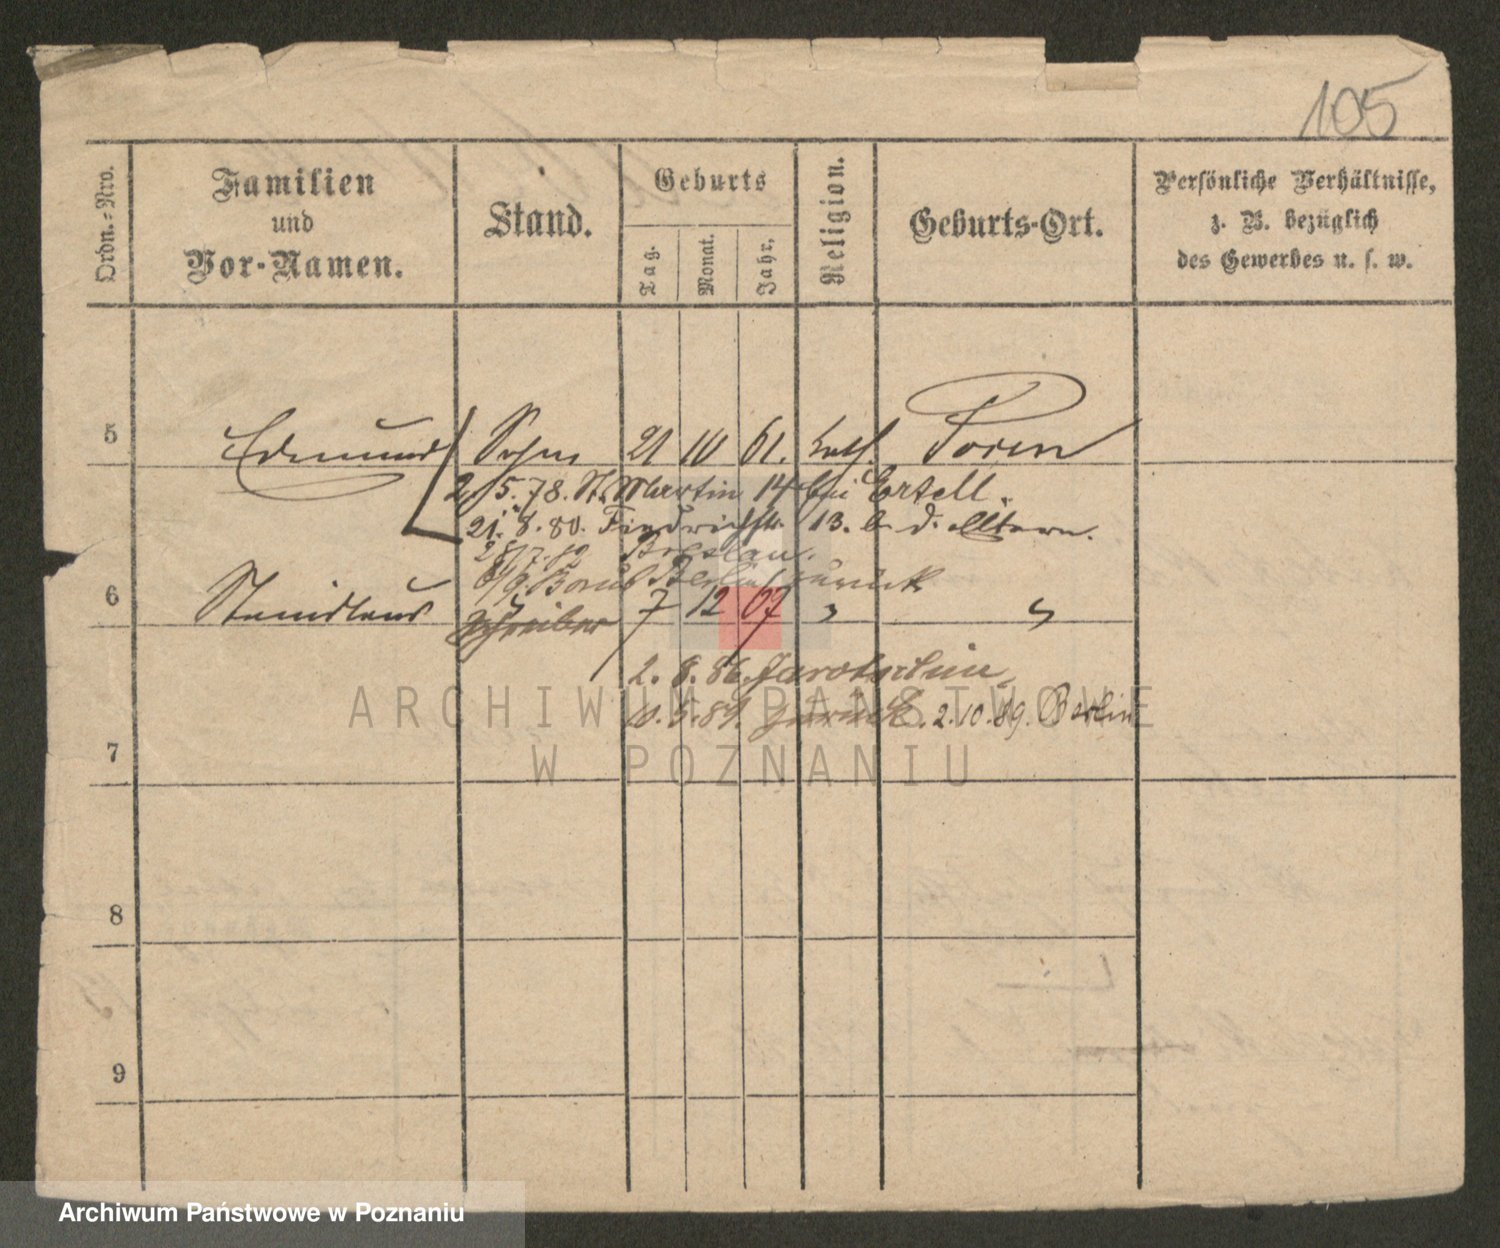 105
Ordn.-Nro.
Familien
und
Vor-Namen.
Stand.
Geburts
Tag.
Monat.
Jahr.
Religion.
Geburts-Ort.
Persönliche Verhältnisse,
z. B. bezüglich
des Gewerbes u. s. w.
5 Edmund Sohn 21 10 61. kath. Posen
2/5.78. St. Martin 14 bei Ertell.
21.8.80. Friedrichstr. 13. b. d. Eltern.
Breslau.
Berlin zurück
6 Stanislaus Schreiber 7 12 67 " "
2. 8. 86. Jarotschin
10.5.89. zurück. 2.10.89. Berlin
7
8
9
ARCHIWUM PAŃSTWOWE
W POZNANIU
Archiwum Państwowe w Poznaniu